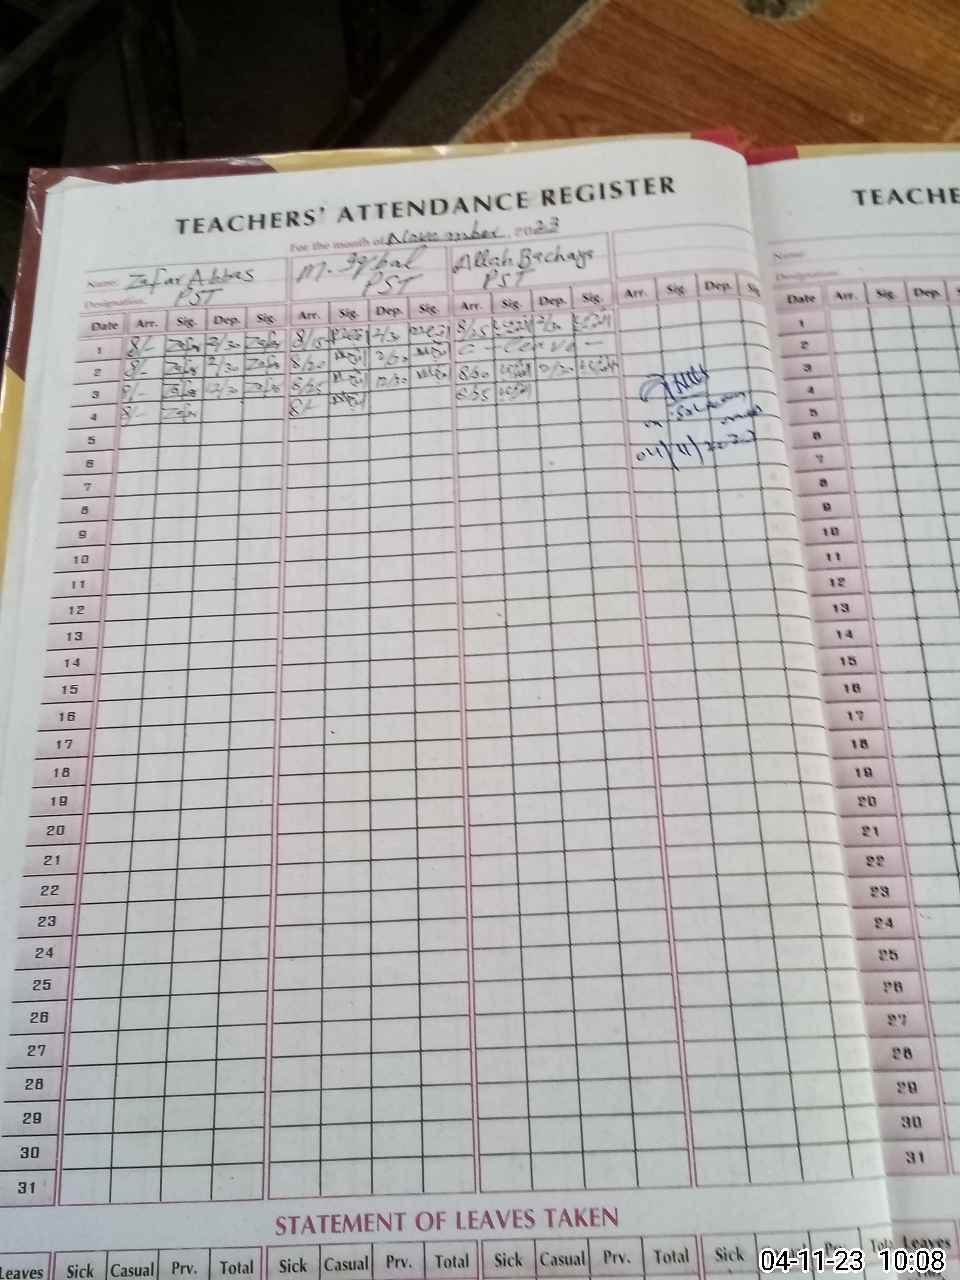 TEACHERS' ATTENDANCE REGISTER
TEACHE
For the month of November, 2023
Name: Zafar Abbas M. Iqbal Allah Bachaya
Name:
Designation: PST PST PST
Designation:
Date Arr. Sig. Dep. Sig. Arr. Sig. Dep. Sig. Arr. Sig. Dep. Sig. Arr. Sig. Dep. Sig
Date Arr. Sig. Dep. S
1 8/- Zafar 2/30 Zafar 8/15 2/30 8/25 2/30
2 8/- Zafar 2/30 Zafar 8/20 2/30 C - Leave -
3 8/- Zafar 12/30 Zafar 8/25 12/30 8/20 12/30
4 8/- Zafar 8/- 8/25
5
6
04/11/2023
7
8
9
10
11
12
13
14
15
16
17
18
19
20
21
22
23
24
25
26
27
28
29
30
31
1
2
3
4
5
6
7
8
9
10
11
12
13
14
15
16
17
18
19
20
21
22
23
24
25
26
27
28
29
30
31
STATEMENT OF LEAVES TAKEN
Leaves Sick Casual Prv. Total Sick Casual Prv. Total Sick Casual Prv. Total Sick Leaves
04-11-23 10:08